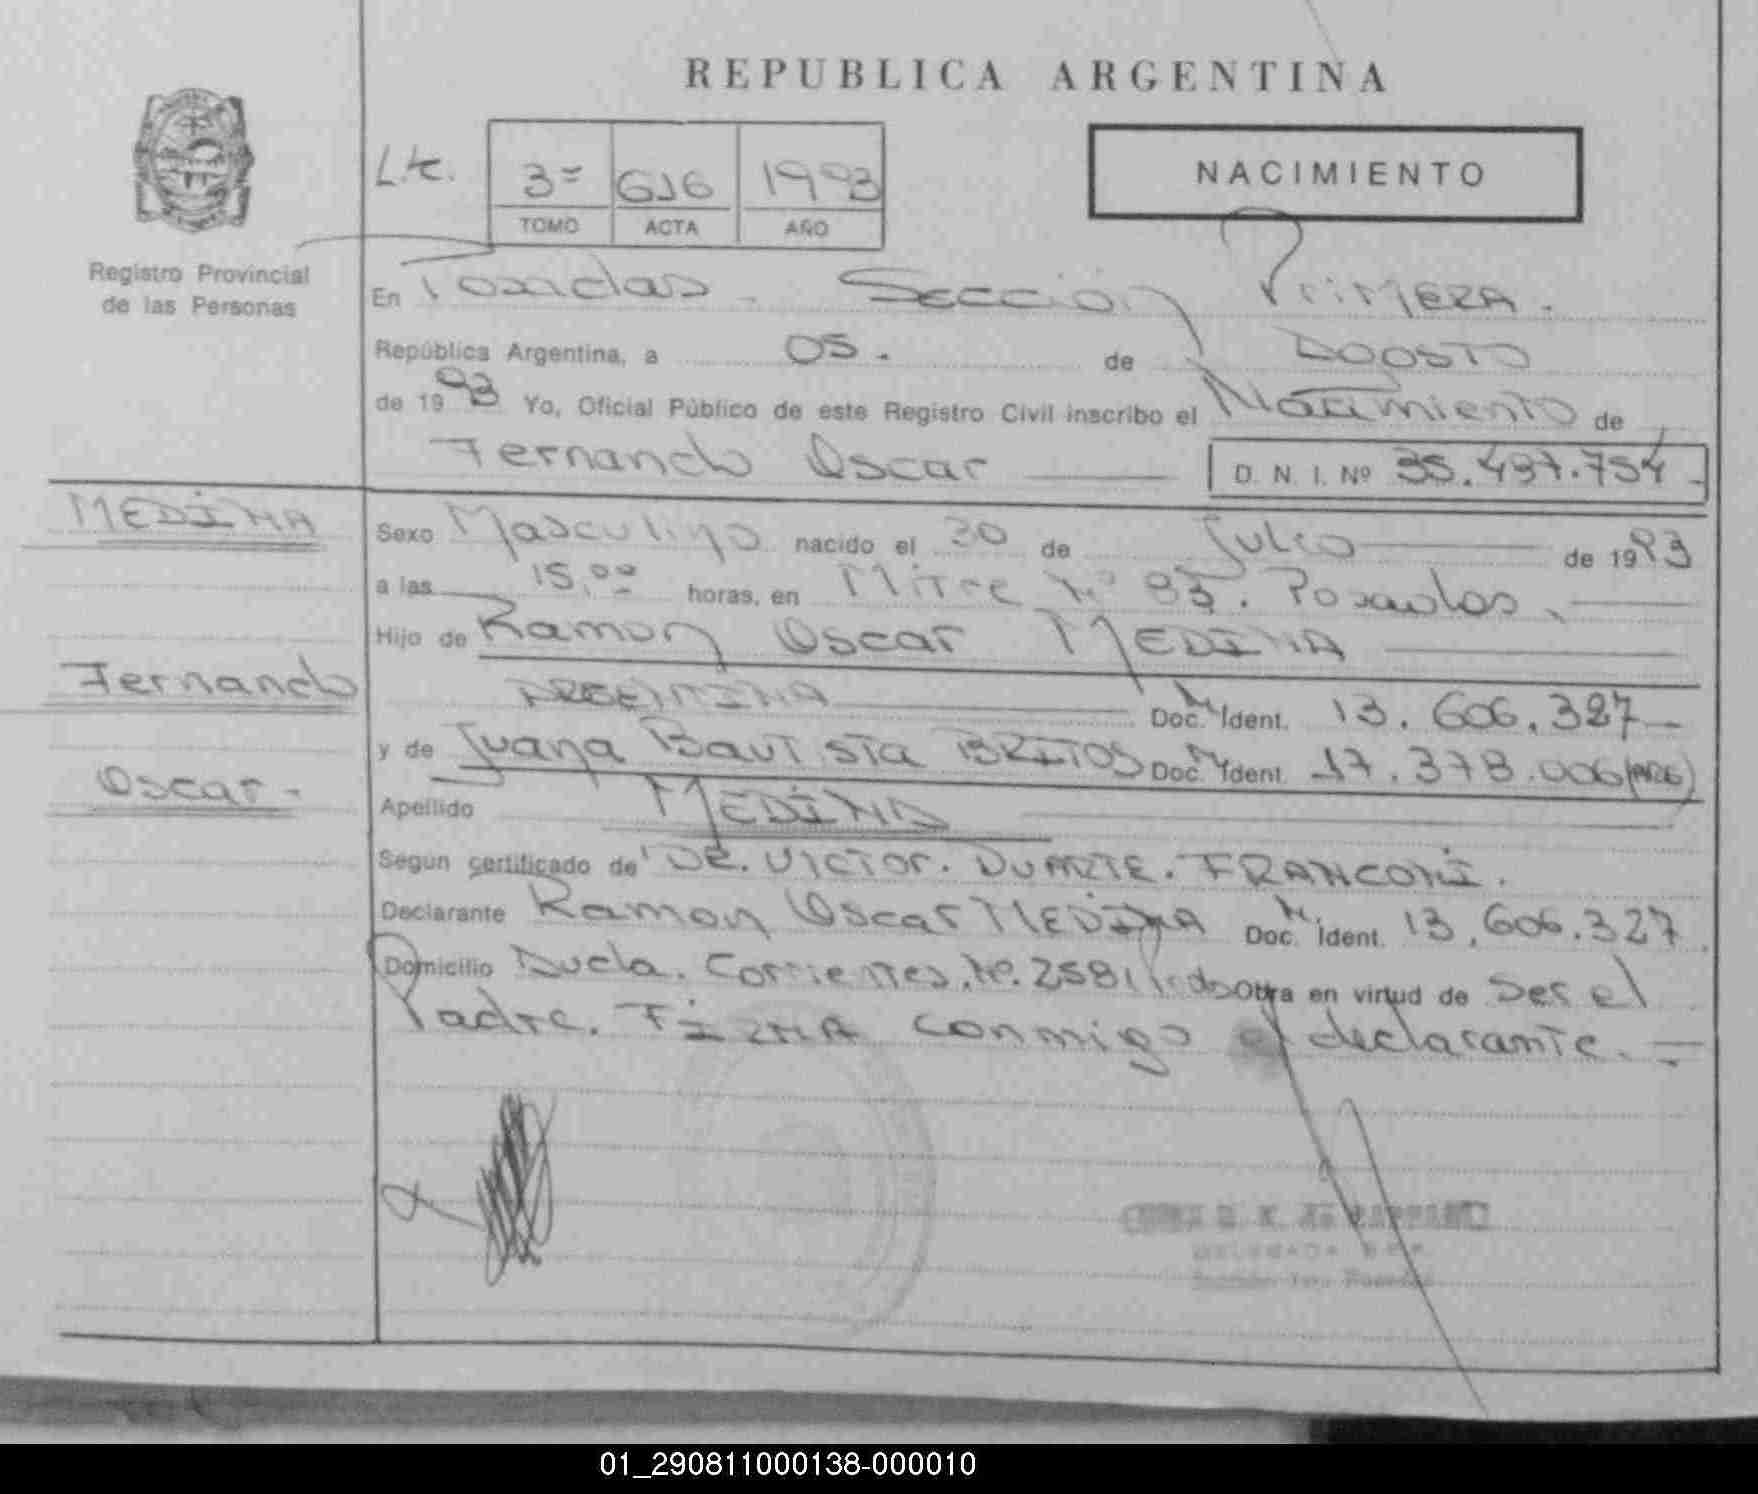 REPUBLICA ARGENTINA
NACIMIENTO
Lt.
3= 616 1993
TOMO ACTA AÑO
Registro Provincial
de las Personas
En Posadas - Sección Primera.
República Argentina, a 05. de Agosto
de 1993 Yo, Oficial Público de este Registro Civil inscribo el Nacimiento de
Fernando Oscar D. N. I. Nº 35.497.754
MEDINA
Fernando
Oscar.-
Sexo Masculino nacido el 30 de Julio de 1993
a las 15,00 horas, en Mitre Nº 93. Posadas.
Hijo de Ramon Oscar MEDINA
ARGENTINA Doc. M Ident. 13.606.327
y de Juana Bautista BRITOS Doc. M Ident. 17.378.006 (ARG)
Apellido MEDINA
Según certificado de DR. VICTOR. DUARTE. FRANCONI.
Declarante Ramon Oscar MEDINA Doc. M. Ident. 13.606.327
Domicilio Avda. Corrientes. Nº. 2581 Obra en virtud de Ser el
Padre. FIRMA conmigo el declarante.=
DELEGADA R.P.P.
01_290811000138-000010